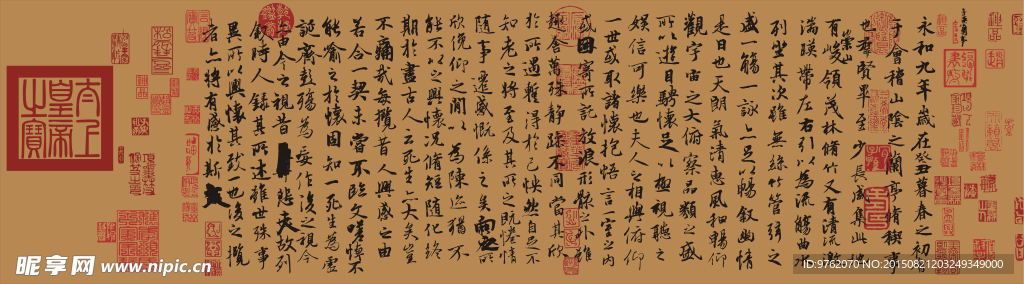 永和九年歲在癸丑暮春之初會
于會稽山陰之蘭亭脩禊事
也羣賢畢至少長咸集此地
有崇山峻領茂林脩竹又有清流激
湍暎帶左右引以為流觴曲水
列坐其次雖無絲竹管弦之
盛一觴一詠亦足以暢敘幽情
是日也天朗氣清惠風和暢仰
觀宇宙之大俯察品類之盛
所以遊目騁懷足以極視聽之
娛信可樂也夫人之相與俯仰
一世或取諸懷抱悟言一室之內
或因寄所託放浪形骸之外雖
趣舍萬殊靜躁不同當其欣
於所遇暫得於己怏然自足不
知老之將至及其所之既惓情
隨事遷感慨係之矣向之所
欣俛仰之閒以為陳迹猶不
能不以之興懷況脩短隨化終
期於盡古人云死生亦大矣豈
不痛哉每攬昔人興感之由
若合一契未嘗不臨文嗟悼不
能喻之於懷固知一死生為虛
誕齊彭殤為妄作後之視今
亦由今之視昔悲夫故列
敘時人錄其所述雖世殊事
異所以興懷其致一也後之攬
者亦將有感於斯文
太上皇帝之寶
昵享网 www.nipic.cn
NO:20150821203249349000
ID:9762070